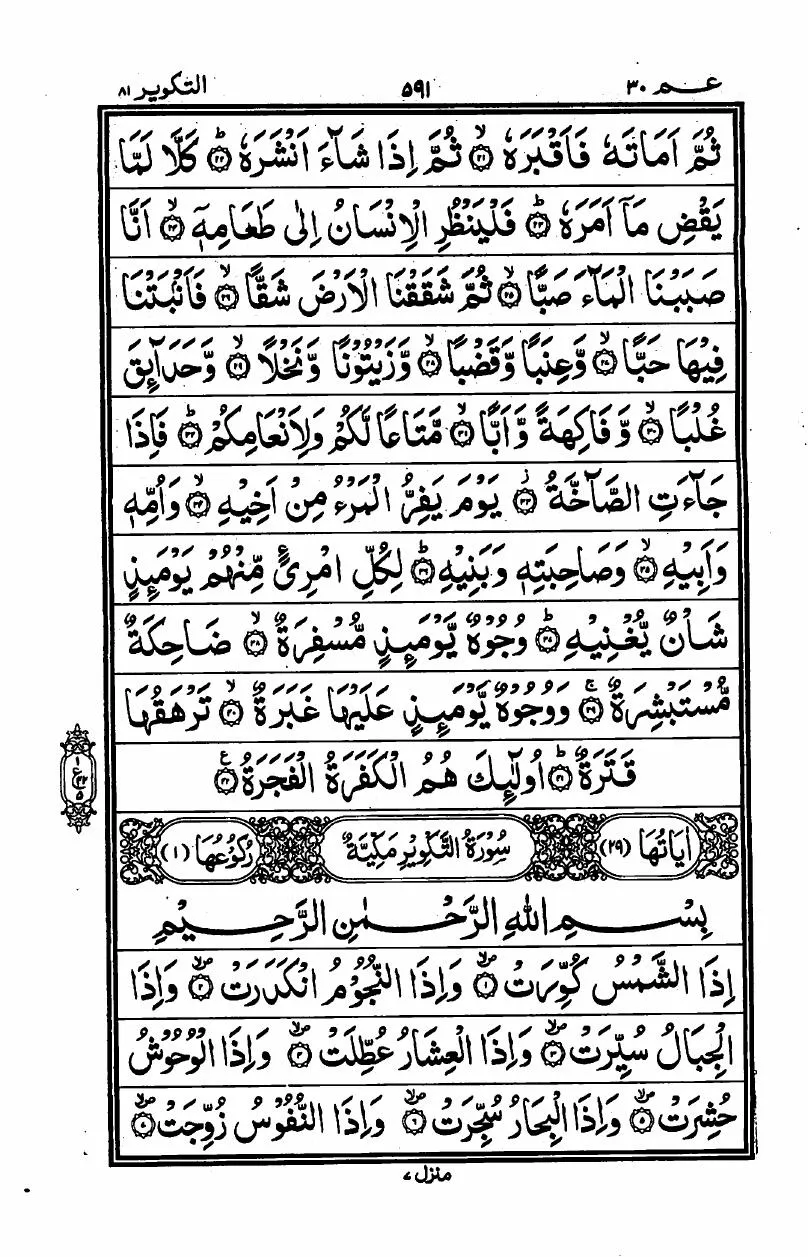 عـم ٣٠
٥٩١
التكوير ٨١
ثُمَّ اَمَاتَهٗ فَاَقْبَرَهٗ ۙ﴿۲۱﴾ ثُمَّ اِذَا شَآءَ اَنْشَرَهٗ ؕ﴿۲۲﴾ كَلَّا لَمَّا
يَقْضِ مَاۤ اَمَرَهٗ ؕ﴿۲۳﴾ فَلْيَنْظُرِ الْاِنْسَانُ اِلٰى طَعَامِهٖۤ ﴿۲۴﴾ اَنَّا
صَبَبْنَا الْمَآءَ صَبًّا ۙ﴿۲۵﴾ ثُمَّ شَقَقْنَا الْاَرْضَ شَقًّا ۙ﴿۲۶﴾ فَاَنْۢبَتْنَا
فِيْهَا حَبًّا ۙ﴿۲۷﴾ وَّعِنَبًا وَّقَضْبًا ۙ﴿۲۸﴾ وَّزَيْتُوْنًا وَّنَخْلًا ۙ﴿۲۹﴾ وَّحَدَآئِقَ
غُلْبًا ۙ﴿۳۰﴾ وَّفَاكِهَةً وَّاَبًّا ۙ﴿۳۱﴾ مَّتَاعًا لَّكُمْ وَلِاَنْعَامِكُمْ ؕ﴿۳۲﴾ فَاِذَا
جَآءَتِ الصَّآخَّةُ ۫﴿۳۳﴾ يَوْمَ يَفِرُّ الْمَرْءُ مِنْ اَخِيْهِ ۙ﴿۳۴﴾ وَاُمِّهٖ
وَاَبِيْهِ ۙ﴿۳۵﴾ وَصَاحِبَتِهٖ وَبَنِيْهِ ؕ﴿۳۶﴾ لِكُلِّ امْرِئٍ مِّنْهُمْ يَوْمَئِذٍ
شَاْنٌ يُّغْنِيْهِ ؕ﴿۳۷﴾ وُجُوْهٌ يَّوْمَئِذٍ مُّسْفِرَةٌ ۙ﴿۳۸﴾ ضَاحِكَةٌ
مُّسْتَبْشِرَةٌ ۚ﴿۳۹﴾ وَوُجُوْهٌ يَّوْمَئِذٍ عَلَيْهَا غَبَرَةٌ ۙ﴿۴۰﴾ تَرْهَقُهَا
قَتَرَةٌ ؕ﴿۴۱﴾ اُولٰٓئِكَ هُمُ الْكَفَرَةُ الْفَجَرَةُ ﴿۴۲﴾ ع
١ ع ٤٢ ٥
اٰيَاتُهَا (٢٩) سُوْرَةُ التَّكْوِيْرِ مَكِّيَّةٌ رُكُوْعُهَا (١)
بِسْمِ اللهِ الرَّحْمٰنِ الرَّحِيْمِ
اِذَا الشَّمْسُ كُوِّرَتْ ۪ۙ﴿۱﴾ وَاِذَا النُّجُوْمُ انْكَدَرَتْ ۪ۙ﴿۲﴾ وَاِذَا
الْجِبَالُ سُيِّرَتْ ۪ۙ﴿۳﴾ وَاِذَا الْعِشَارُ عُطِّلَتْ ۪ۙ﴿۴﴾ وَاِذَا الْوُحُوْشُ
حُشِرَتْ ۪ۙ﴿۵﴾ وَاِذَا الْبِحَارُ سُجِّرَتْ ۪ۙ﴿۶﴾ وَاِذَا النُّفُوْسُ زُوِّجَتْ ۪ۙ﴿۷﴾
منزل ٧